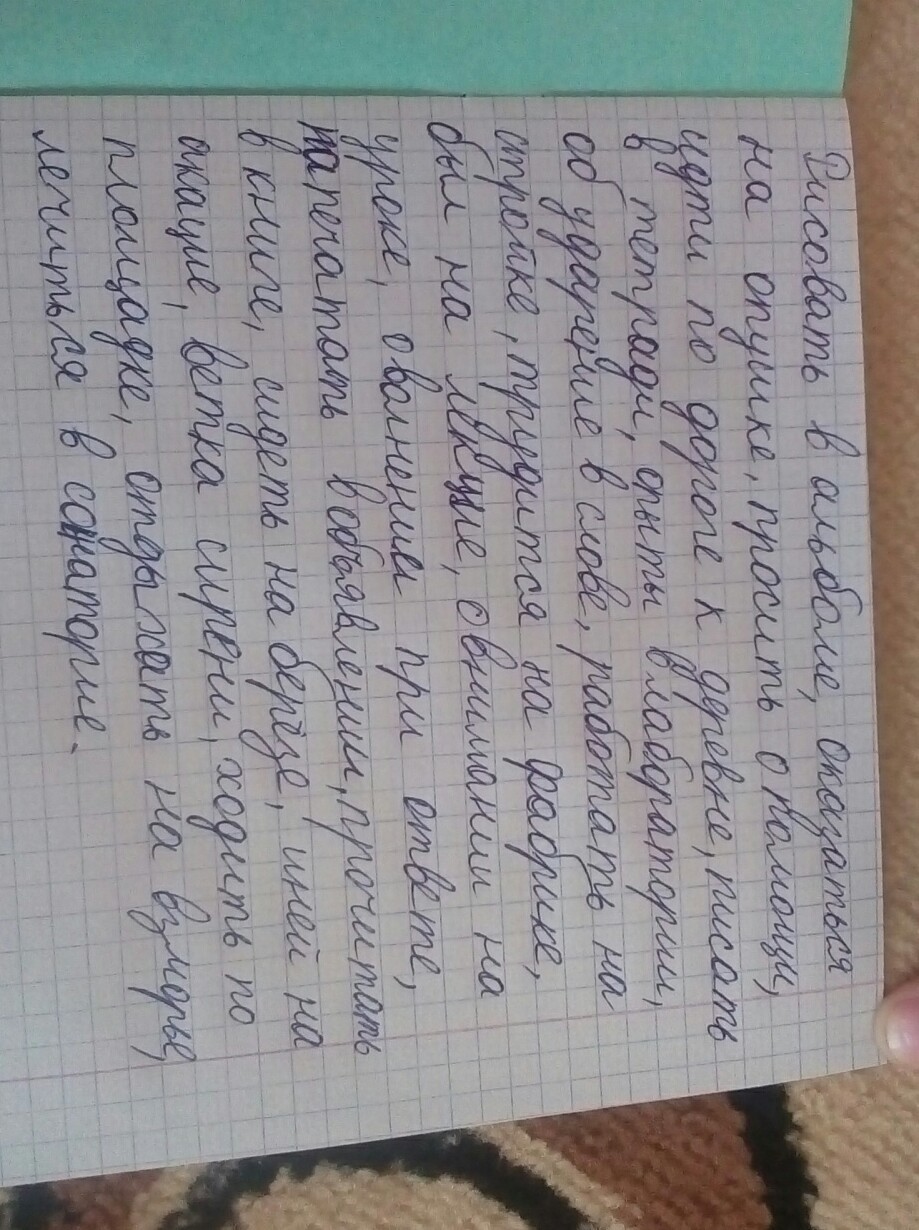 Рисовать в альболе, оказаться
на опушке, просить о помощи,
идти по дороге к деревне, писать
в тетради, опыты в лаборатории,
об ударение в слове, работать на
стройке, трудится на фабрике,
был на лекцие, о внимании на
уроке, о волнении при ответе,
напечатать в объявлении, прочитать
в книге, сидеть на берёзе, иней на
акацие, ветка сирени, ходить по
площадке, отдыхать на взморье,
лечиться в санаторие.